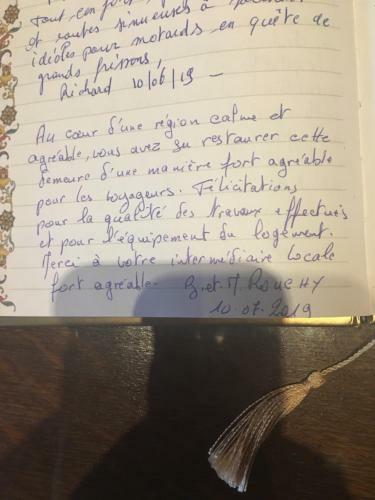 et routes sinueuses à
idéales pour motards en quête de
grands frissons,
Richard 10/06/19 —
Au cœur d'une région calme et
agréable, vous avez su restaurer cette
demeure d'une manière fort agréable
pour les voyageurs. Félicitations
pour la qualité des travaux effectués
et pour l'équipement du logement.
Merci à votre intermédiaire locale
fort agréable. B. et M. ROUCHY
10.07.2019